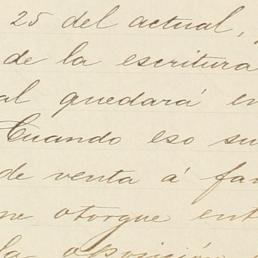 25 del actual,
de la escritura
al quedará en
Cuando eso su
de venta á fa
ne otorgue ent
la oposición